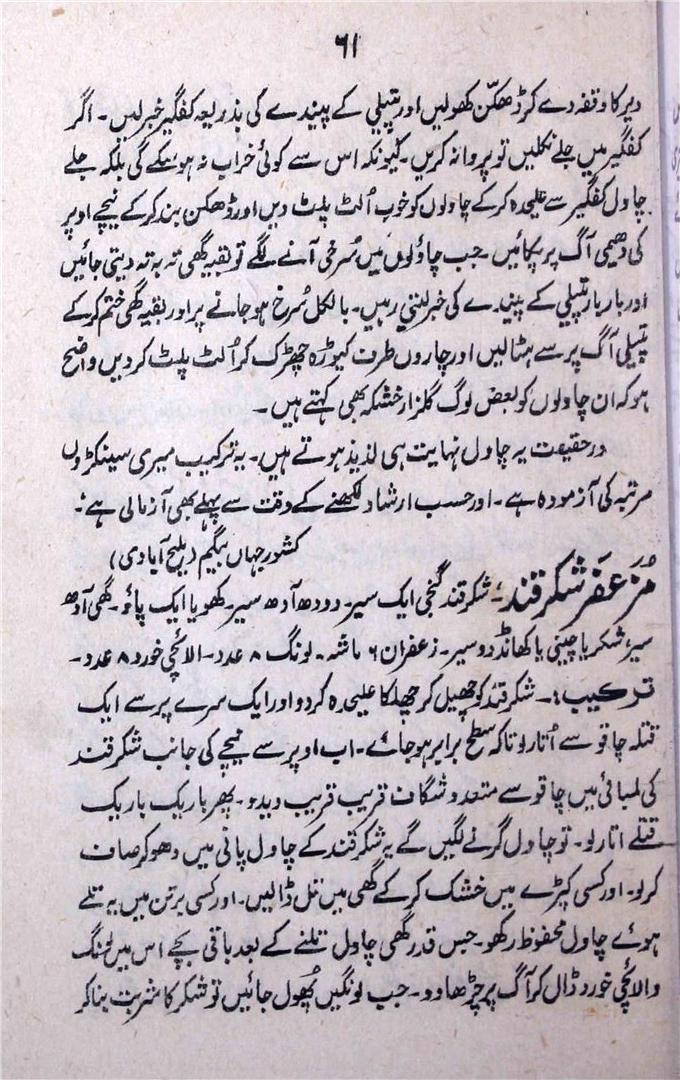 ۶۱
دیر کا وقفہ دے کر ڈھکّن کھولیں اور پتیلی کے پیندے کی بذریعہ کفگیر خبر لیں۔ اگر
کفگیر میں جلے نکلیں تو پروا نہ کریں۔ کیونکہ اس سے کوئی خراب نہ ہو سکے گی بلکہ جلے
چاول کفگیر سے علیحدہ کر کے چاولوں کو خوب اُلٹ پلٹ دیں اور ڈھکن بند کر کے نیچے اوپر
کی دھیمی آگ پر پکائیں۔ جب چاؤلوں میں سُرخی آنے لگے تو بقیہ گھی تہ بہ تہ دیتی جائیں
اور بار بار پتیلی کے پیندے کی خبر لیتی رہیں۔ بالکل سُرخ ہو جانے پر اور بقیہ گھی ختم کر کے
پتیلی آگ پر سے ہٹا لیں اور چاروں طرف کیوڑہ چھڑک کر اُلٹ پلٹ کر دیں واضح
ہو کہ ان چاولوں کو بعض لوگ گلزار خشکہ بھی کہتے ہیں۔
درحقیقت یہ چاول نہایت ہی لذیذ ہوتے ہیں۔ یہ ترکیب میری سینکڑوں
مرتبہ کی آزمودہ ہے۔ اور حسب ارشاد لکھنے کے وقت سے پہلے بھی آزما لی ہے۔
کشور جہاں بیگم (ملیح آبادی)
مُزعفر شکرقند:۔ شکر قند گنجی ایک سیر۔ دودھ آدھ سیر۔ کھویا ایک پاؤ۔ گھی آدھ
سیر، شکر یا چینی یا کھانڈ دو سیر۔ زعفران ۶ ماشہ۔ لونگ ۸ عدد۔ الائچی خورد ۸ عدد۔
ترکیب:۔ شکر قند کو چھیل کر چھلکا علیحدہ کر دو اور ایک سرے پر سے ایک
قتلہ چاقو سے اُتار لو تاکہ سطح برابر ہو جائے۔ اب اوپر سے نیچے کی جانب شکر قند
کی لمبائی میں چاقو سے متعدد شگاف قریب قریب دیدو۔ پھر باریک باریک
قتلے اتار لو۔ تو چاول گرنے لگیں گے یہ شکر قند کے چاول پانی میں دھو کر صاف
کر لو۔ اور کسی کپڑے میں خشک کر کے گھی میں تل ڈالیں۔ اور کسی برتن میں یہ تلے
ہوئے چاول محفوظ رکھو۔ جس قدر گھی چاول تلنے کے بعد باقی بچے اس میں لونگ
و الائچی خورد ڈال کر آگ پر چڑھا دو۔ جب لونگیں پھُول جائیں تو شکر کا شربت بنا کر